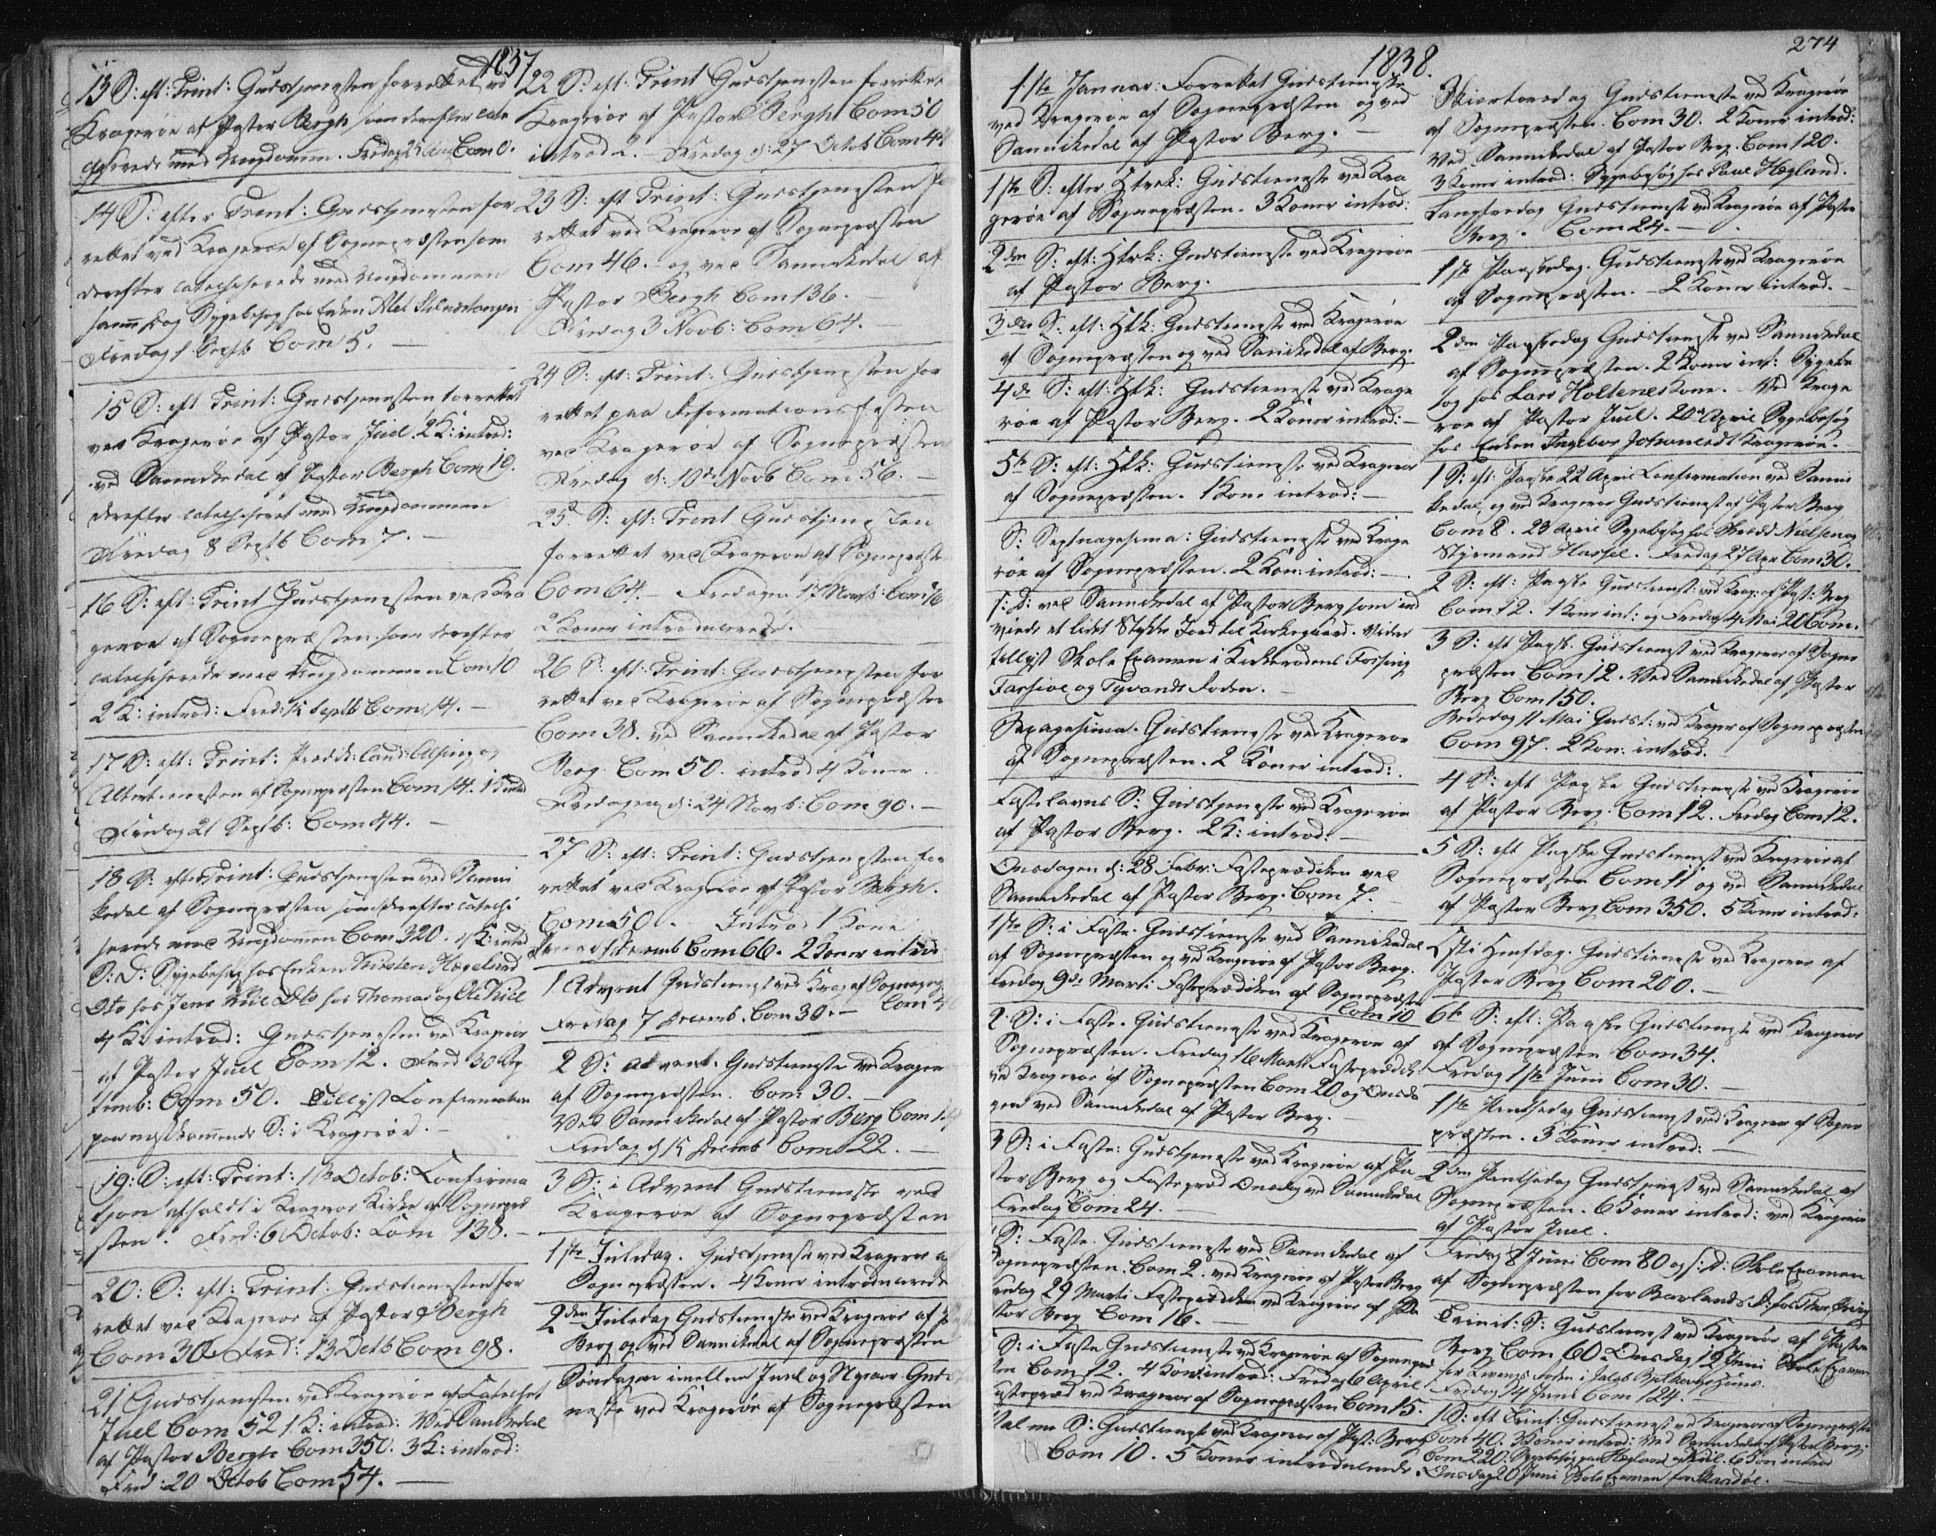 1837
13 S: eft: Trint: Gudstjenesten forrettet ved
Kragerøe af Pastor Bergh som derefter cate
chiserede med Ungdommen. Fredag 25 Aug Com 0.
14 S: efter Trint: Gudstjenesten for
rettet ved Kragerøe af Sognepræsten som
derefter catechiserede med Ungdommen
samme Dag Sygebesøg hos Enken
Fredag 1 Septb Com 5. —
15 S: eft Trint: Gudstjenesten forrettet
ved Kragerøe af Pastor Juel. 2 K: introd:
ved Sannikedal af Pastor Bergh Com 19.
derefter catechiseret med Ungdommen
Fredag 8 Septb Com 7. —
16 S: eft: Trint Gudstjenesten ved Kra
gerøe af Sognepræsten som derefter
catechiserede med Ungdommen Com 10
2 K: introd: Fred: 15 Septb Com 14. —
17 S: eft: Trint: Prædik: Cand:
Altertjenesten af Sognepræsten Com 14. 1 K introd
Fredag 21 Septb: Com 44. —
18 S: efter Trint: Gudstjenesten ved Sanni
kedal af Sognepræsten som derefter catechi
serede med Ungdommen Com 320.
S: D: Sygebesøg hos Enken Kirsten Hegelund
Dto hos Jens Kiil Dto hos Thomas og Ole Kiil
4 K: introd: Gudstjenesten ved Kragerøe
af Pastor Juel Com 12. Fred 30 Sep
temb: Com 50. Tillyst Confirmation
paa næstkommende S: i Kragerøe. —
19: S: eft: Trint: 1 Octob: Confirma
tion afholdt i Kragerøe Kirke af Sognepræ
sten. Fred: 6 Octob: Com 138. —
20: S: eft: Trint: Gudstienesten for
rettet ved Kragerøe af Pastor Bergh
Com 30 Fred: 13 Octb Com 98.
21 Gudstjenesten ved Kragerøe af Catechet
Juel Com 52 1 K: introd: Ved Sannikedal
af Pastor Bergh Com 350. 3 K: introd:
Fred: 20 Octob Com 54. —
22 S: eft: Trint Gudstjenesten forrettet
Kragerøe af Pastor Bergh Com 50
introd 2. Fredag d: 27 Octb Com 44
23 S: eft Trint: Gudstjenesten fo
rettet ved Kragerøe af Sognepræsten
Com 46. — og ved Sannikedal af
Pastor Bergh Com 136.
Fredag 3 Novb: Com 64. —
24 S: eft: Trint: Gudstjenesten for
rettet paa Reformationsfesten
ved Kragerøe af Sognepræsten
Fredag d: 10de Novb Com 56. —
25 S: eft: Trint Gudstjenesten
forrettet ved Kragerøe af Sognepræste
Com 64. — Fredagen 17 Novb: Com 16
2 Koner introducerede.
26 S: eft: Trint: Gudstjenesten for
rettet ved Kragerøe af Sognepræsten
Com 38. ved Sannikedal af Pastor
Berg. Com 50. introd 4 Koner.
Fredagen d: 24 Novb: Com 90. —
27 S: eft: Trint: Gudstjenesten for
rettet ved Kragerøe af Pastor Bergh.
Com 50. Introd 1 Kone
Fredag 1 Decemb Com 66. 2 Koner introd
1 Advent Gudstjenest ved Krag: af Sognepr
Fredag 7 Decemb. Com 30. — Com 4
2 S: Advent. Gudstieneste ved Kragerø
af Sognepræsten. Com: 30.
Ved Sannikedal af Pastor Berg Com 1
Fredag d 15 Decemb Com 22. —
3 S: i Advent Gudstieneste ved
Kragerøe af Sognepræsten
1ste Juledag. Gudstjeneste ved Kragerøe af
Sognepræsten. 4 Koner introducerede
2den Juledag Gudstieneste ved Kragerøe af P
Berg og ved Sannikedal af Sognepræsten
Søndagen imellem Juul og Nytaar Guds
tieneste ved Kragerøe af Sognepræsten
1838.
274
1ste Januar: Forrettet Gudstieneste
ved Kragerøe af Sognepræsten og ved
Sannikedal af Pastor Berg. —
1ste S: efter H3rek: Gudstieneste ved Kra
gerøe af Sognepræsten. 3 Koner introd:
2den S: eft: H3rk: Gudstieneste ved Kragerøe
af Pastor Berg.
3die S: eft: H3k: Gudstieneste ved Kragerøe
af Sognepræsten og ved Sannikedal af Berg.
4de S: eft: H3k: Gudstieneste ved Krage
røe af Pastor Berg. 2 Koner introd: —
5te S: eft: H3k: Gudstieneste ved Kragerøe
af Sognepræsten. 1 Kone introd: —
S: Septuagesima: Gudstieneste ved Krage
røe af Sognepræsten. 2 Kon: introd: —
s: D: ved Sannikedal af Pastor Berg som ind
viede et lidet Stykke Jord til Kirkegaard. Videre
tillyst Skole Examen i
og Tyvands Roden. —
Sexagesima. Gudstieneste ved Kragerøe
af Sognepræsten. 2 Koner introd:
Fastelavns S: Gudstieneste ved Kragerøe
af Pastor Berg. 2 K: introd: —
Onsdagen d: 28 Febr: Fasteprædiken ved
Sannikedal af Pastor Berg. Com 7. —
1ste S: i Faste. Gudstieneste ved Sannikedal
af Sognepræsten og ved Kragerøe af Pastor Berg.
Fredag 9de Marti Fasteprædiken af Sognepræsten
Com 10
2 S: i Faste. Gudstieneste ved Kragerøe af
Sognepræsten. Fredag 16 Marti Fasteprædik:
ved Kragerøe af Sognepræsten Com 20 og Onsda
gen ved Sannikedal af Pastor Berg.
3 S: i Faste: Gudstjeneste ved Kragerøe af Pa
stor Berg og Fastepræd Onsdag ved Sannikedal
Fredag Com 24. —
S: Faste. Gudstieneste ved Sannikedal af
Sognepræsten. Com 2. ved Kragerøe af Pastor Berg
Fredag 29 Marti Fasteprædiken ved Kragerøe af Pa
stor Berg Com 16. —
S: i Faste Gudstieneste ved Kragerøe af Sognepræ
sten Com 12. 4 Kon: introd: Fredag 6 April
Fastepræd ved Kragerøe af Sognepræsten Com 15.
Palme S: Gudstienest ved Kragerøe af Past: Berg
Com 10. 5 Koner introducerede.
Skiertorsdag Gudstieneste ved Kragerøe
af Sognepræsten. Com 30. 2 Koner introd:
Ved Sannikedal af Pastor Berg. Com 120.
3 Koner introd: Sygebesøg hos Paul Hegland.
Langfredag Gudstieneste ved Kragerøe af Pastor
Berg. Com 24. —
1ste Paaskedag. Gudstieneste ved Kragerøe
af Sognepræsten. — 2 Koner introd. —
2den Paaskedag Gudstieneste ved Sannikedal
af Sognepræsten. 2 Koner int: Sygebe
søg hos Lars Holtenes Kone. — Ved Krage
røe af Pastor Juul. 20de April Sygebesøg
hos Enken Ingebor Johannesd: Kragerøe. —
1 S: eft: Paaske 22 April Confirmation ved Sanni
kedal og ved Kragerøe Gudstienest af Pastor Berg
Com 8. 23 April Sygebesøg hos Nielsen og
Styrmand Hassel. Fredag 27 Apr Com 30.
2 S: eft: Paaske Gudstienest: ved Krag: af Past: Berg
Com 12. 1 Kone int: og Fredag 4 Mai 20 Com.
3 S: eft Paask. Gudstienest ved Kragerøe af Sogne
præsten Com 12. Ved Sannikedal af Pastor
Berg Com 150.
Bededag 11 Mai Gudst: ved Krager af Sognepræsten
Com 97. 2 Kon: introd:
4 S: eft Paaske Gudstieneste ved Kragerøe
af Pastor Berg. Com 12. Fredag Com 12.
5 S: eft Paaske Gudstienest ved Kragerøe af
Sognepræsten Com 11 og ved Sannikedal
af Pastor Berg Com 350. 5 Koner introd:
Christi Himfdag. Gudstieneste ved Kragerøe af
Pastor Berg Com 200. —
6te S: eft: Paaske Gudstieneste ved Kragerøe
af Sognepræsten Com 34.
Fredag 1ste Juni Com 30. —
1ste Pintsedag Gudstienest ved Kragerøe af Sogne
præsten. 3 Koner introd: —
2den Pintsedag Gudstienest ved Sannikedal af
Sognepræsten. 6 Koner introd: ved Kragerøe
af Pastor Juul.
Fredag 8 Juni Com 80 og s: D: Skole Examen
af Sognepræsten for Barlands
Trinit: S: Gudstienest ved Kragerøe af Pastor
Berg Com 60. Onsdag 12 Juni Skole Examen
Fredag 14 Juni Com 124. —
1 S: eft Trint: Gudstienest ved Kragerøe af Sognepræsten
Com 40. 3 Koner introd: Ved Sannikedal af Pastor Berg:
Com 220. Sygebesøg paa Hegland og Kiil. 6 Kon introd
Onsdag 20 Juni Skole Examen for Skaadøe. —